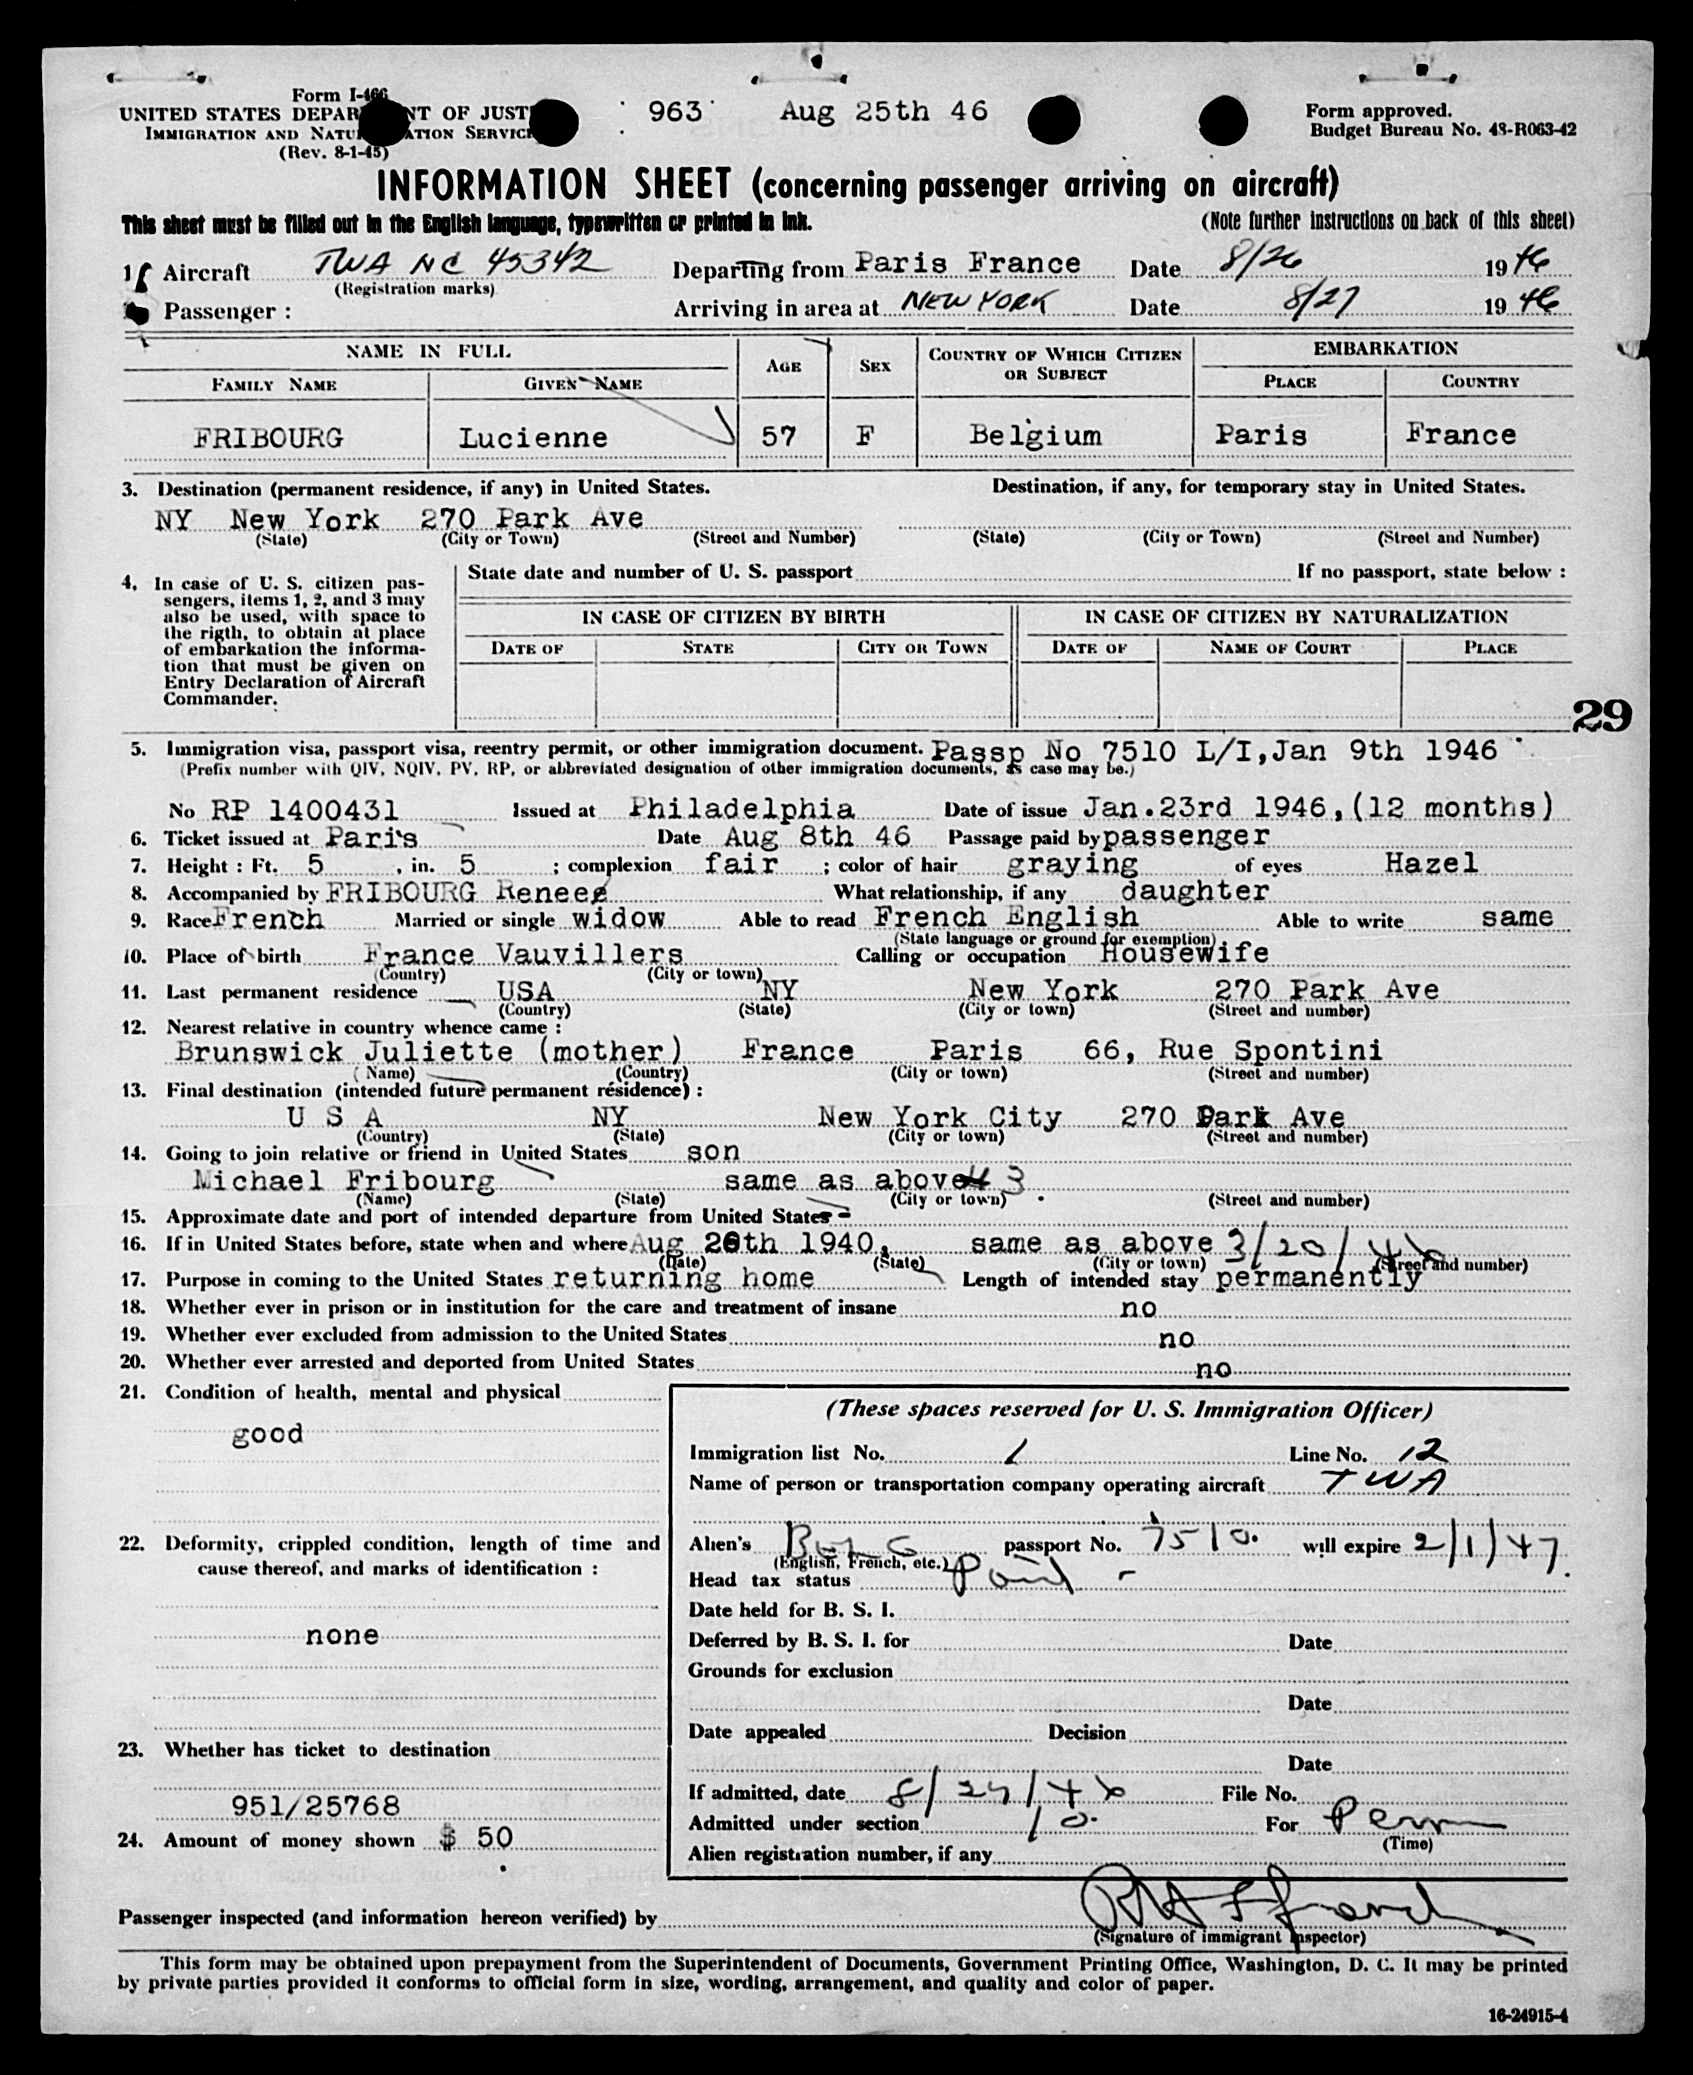 Form I-466
UNITED STATES DEPARTMENT OF JUSTICE
IMMIGRATION AND NATURALIZATION SERVICE
(Rev. 8-1-45)
963 Aug 25th 46
Form approved.
Budget Bureau No. 43-R063-42
INFORMATION SHEET (concerning passenger arriving on aircraft)
This sheet must be filled out in the English language, typewritten or printed in ink. (Note further instructions on back of this sheet)
1 Aircraft TWA NC 45342 Departing from Paris France Date 8/26 1946
(Registration marks)
Passenger : Arriving in area at NEW YORK Date 8/27 1946
NAME IN FULL AGE SEX COUNTRY OF WHICH CITIZEN OR SUBJECT EMBARKATION
FAMILY NAME GIVEN NAME PLACE COUNTRY
FRIBOURG Lucienne 57 F Belgium Paris France
3. Destination (permanent residence, if any) in United States. Destination, if any, for temporary stay in United States.
NY New York 270 Park Ave
(State) (City or Town) (Street and Number) (State) (City or Town) (Street and Number)
4. In case of U. S. citizen pas-
sengers, items 1, 2, and 3 may
also be used, with space to
the rigth, to obtain at place
of embarkation the informa-
tion that must be given on
Entry Declaration of Aircraft
Commander.
State date and number of U. S. passport If no passport, state below :
IN CASE OF CITIZEN BY BIRTH IN CASE OF CITIZEN BY NATURALIZATION
DATE OF STATE CITY OR TOWN DATE OF NAME OF COURT PLACE
29
5. Immigration visa, passport visa, reentry permit, or other immigration document. Passp No 7510 L/I, Jan 9th 1946
(Prefix number with QIV, NQIV, PV, RP, or abbreviated designation of other immigration documents, as case may be.)
No RP 1400431 Issued at Philadelphia Date of issue Jan.23rd 1946,(12 months)
6. Ticket issued at Paris Date Aug 8th 46 Passage paid by passenger
7. Height : Ft. 5 , in. 5 ; complexion fair ; color of hair graying of eyes Hazel
8. Accompanied by FRIBOURG Renee What relationship, if any daughter
9. Race French Married or single widow Able to read French English Able to write same
(State language or ground for exemption)
10. Place of birth France Vauvillers Calling or occupation Housewife
(Country) (City or town)
11. Last permanent residence USA NY New York 270 Park Ave
(Country) (State) (City or town) (Street and number)
12. Nearest relative in country whence came :
Brunswick Juliette (mother) France Paris 66, Rue Spontini
(Name) (Country) (City or town) (Street and number)
13. Final destination (intended future permanent résidence) :
U S A NY New York City 270 Park Ave
(Country) (State) (City or town) (Street and number)
14. Going to join relative or friend in United States son
Michael Fribourg same as above 3
(Name) (State) (City or town) (Street and number)
15. Approximate date and port of intended departure from United States -
16. If in United States before, state when and where Aug 26th 1940, same as above 3/20/46
(Date) (State) (City or town) (Street and number)
17. Purpose in coming to the United States returning home Length of intended stay permanently
18. Whether ever in prison or in institution for the care and treatment of insane no
19. Whether ever excluded from admission to the United States no
20. Whether ever arrested and deported from United States no
21. Condition of health, mental and physical
good
22. Deformity, crippled condition, length of time and
cause thereof, and marks of identification :
none
23. Whether has ticket to destination
951/25768
24. Amount of money shown $ 50
(These spaces reserved for U. S. Immigration Officer)
Immigration list No. 1 Line No. 12
Name of person or transportation company operating aircraft TWA
Alien's passport No. 7510. will expire 2/1/47.
(English, French, etc.)
Head tax status Paid -
Date held for B. S. I.
Deferred by B. S. I. for Date
Grounds for exclusion
Date
Date appealed Decision
Date
If admitted, date 8/27/46 File No.
Admitted under section 10. For Perm
(Time)
Alien registration number, if any
Passenger inspected (and information hereon verified) by
(Signature of immigrant inspector)
This form may be obtained upon prepayment from the Superintendent of Documents, Government Printing Office, Washington, D. C. It may be printed
by private parties provided it conforms to official form in size, wording, arrangement, and quality and color of paper.
16-24915-4